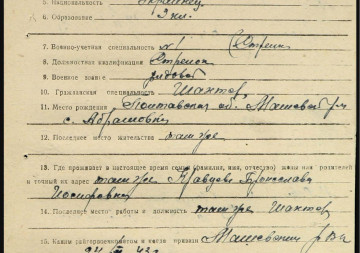 5. Национальность Украинец
6. Образование 3 кл.
7. Военно-учетная специальность №1 Стрелк
8. Должностная квалификация Стрелок
9. Военное звание рядовой
10. Гражданская специальность Шахтер
11. Место рождения Полтавская об. Машевск р-н
с. Абрамовка
12. Последнее место жительства там же
13. Где проживает в настоящее время семья (фамилия, имя, отчество) жены или родителей
и точный их адрес там же Кравцева Бронслава
Иосифовна
14. Последнее место работы и должность там же Шахтер
15. Каким райгорвоенкоматом и когда призван Машевским РВК
43 г.